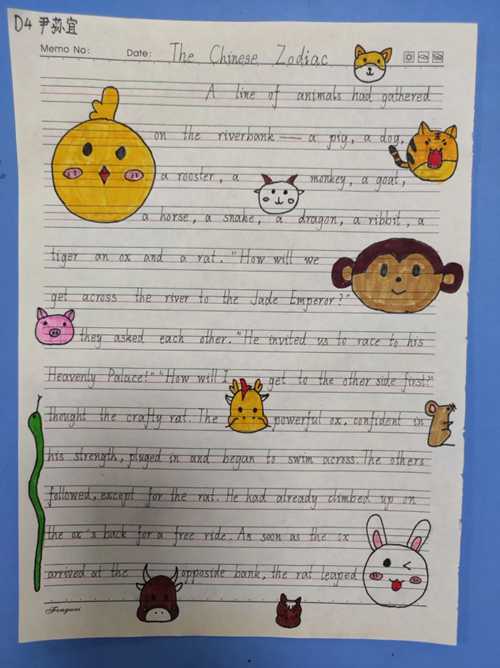 D4 尹弥宜
Memo No: Date: The Chinese Zodiac
A line of animals had gathered
on the riverbank — a pig, a dog,
a rooster, a monkey, a goat,
a horse, a snake, a dragon, a ribbit, a
tiger an ox and a rat. "How will we
get across the river to the Jade Emperor?"
they asked each other. "He invited us to race to his
Heavenly Palace!" "How will I get to the other side first?"
thought the crafty rat. The powerful ox, confident in
his strength, pluged in and began to swim across. The others
followed, except for the rat. He had already climbed up on
the ox's back for a free ride. As soon as the ox
arrived at the opposide bank, the rat leaped